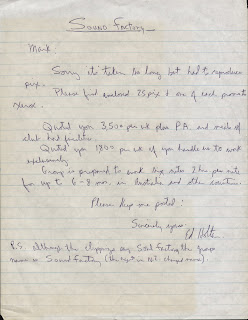 Sound Factory
Mark:
Sorry its taken too long but had to reproduce
pix.
Please find enclosed 25 pix & one of each promotn
Quoted you 350 per wk plus P.A. and meals
at club had facilities.
Quoted you 180 per wk if you handle us to work
exclusively.
Group is prepared to work six nites 7 hrs per nite
for up to 6-8 mos. in Australia and other countries.
Please keep me posted!
Sincerely yours
P.S. Although the clippings say Soul Factory the group
name is Sound Factory (the